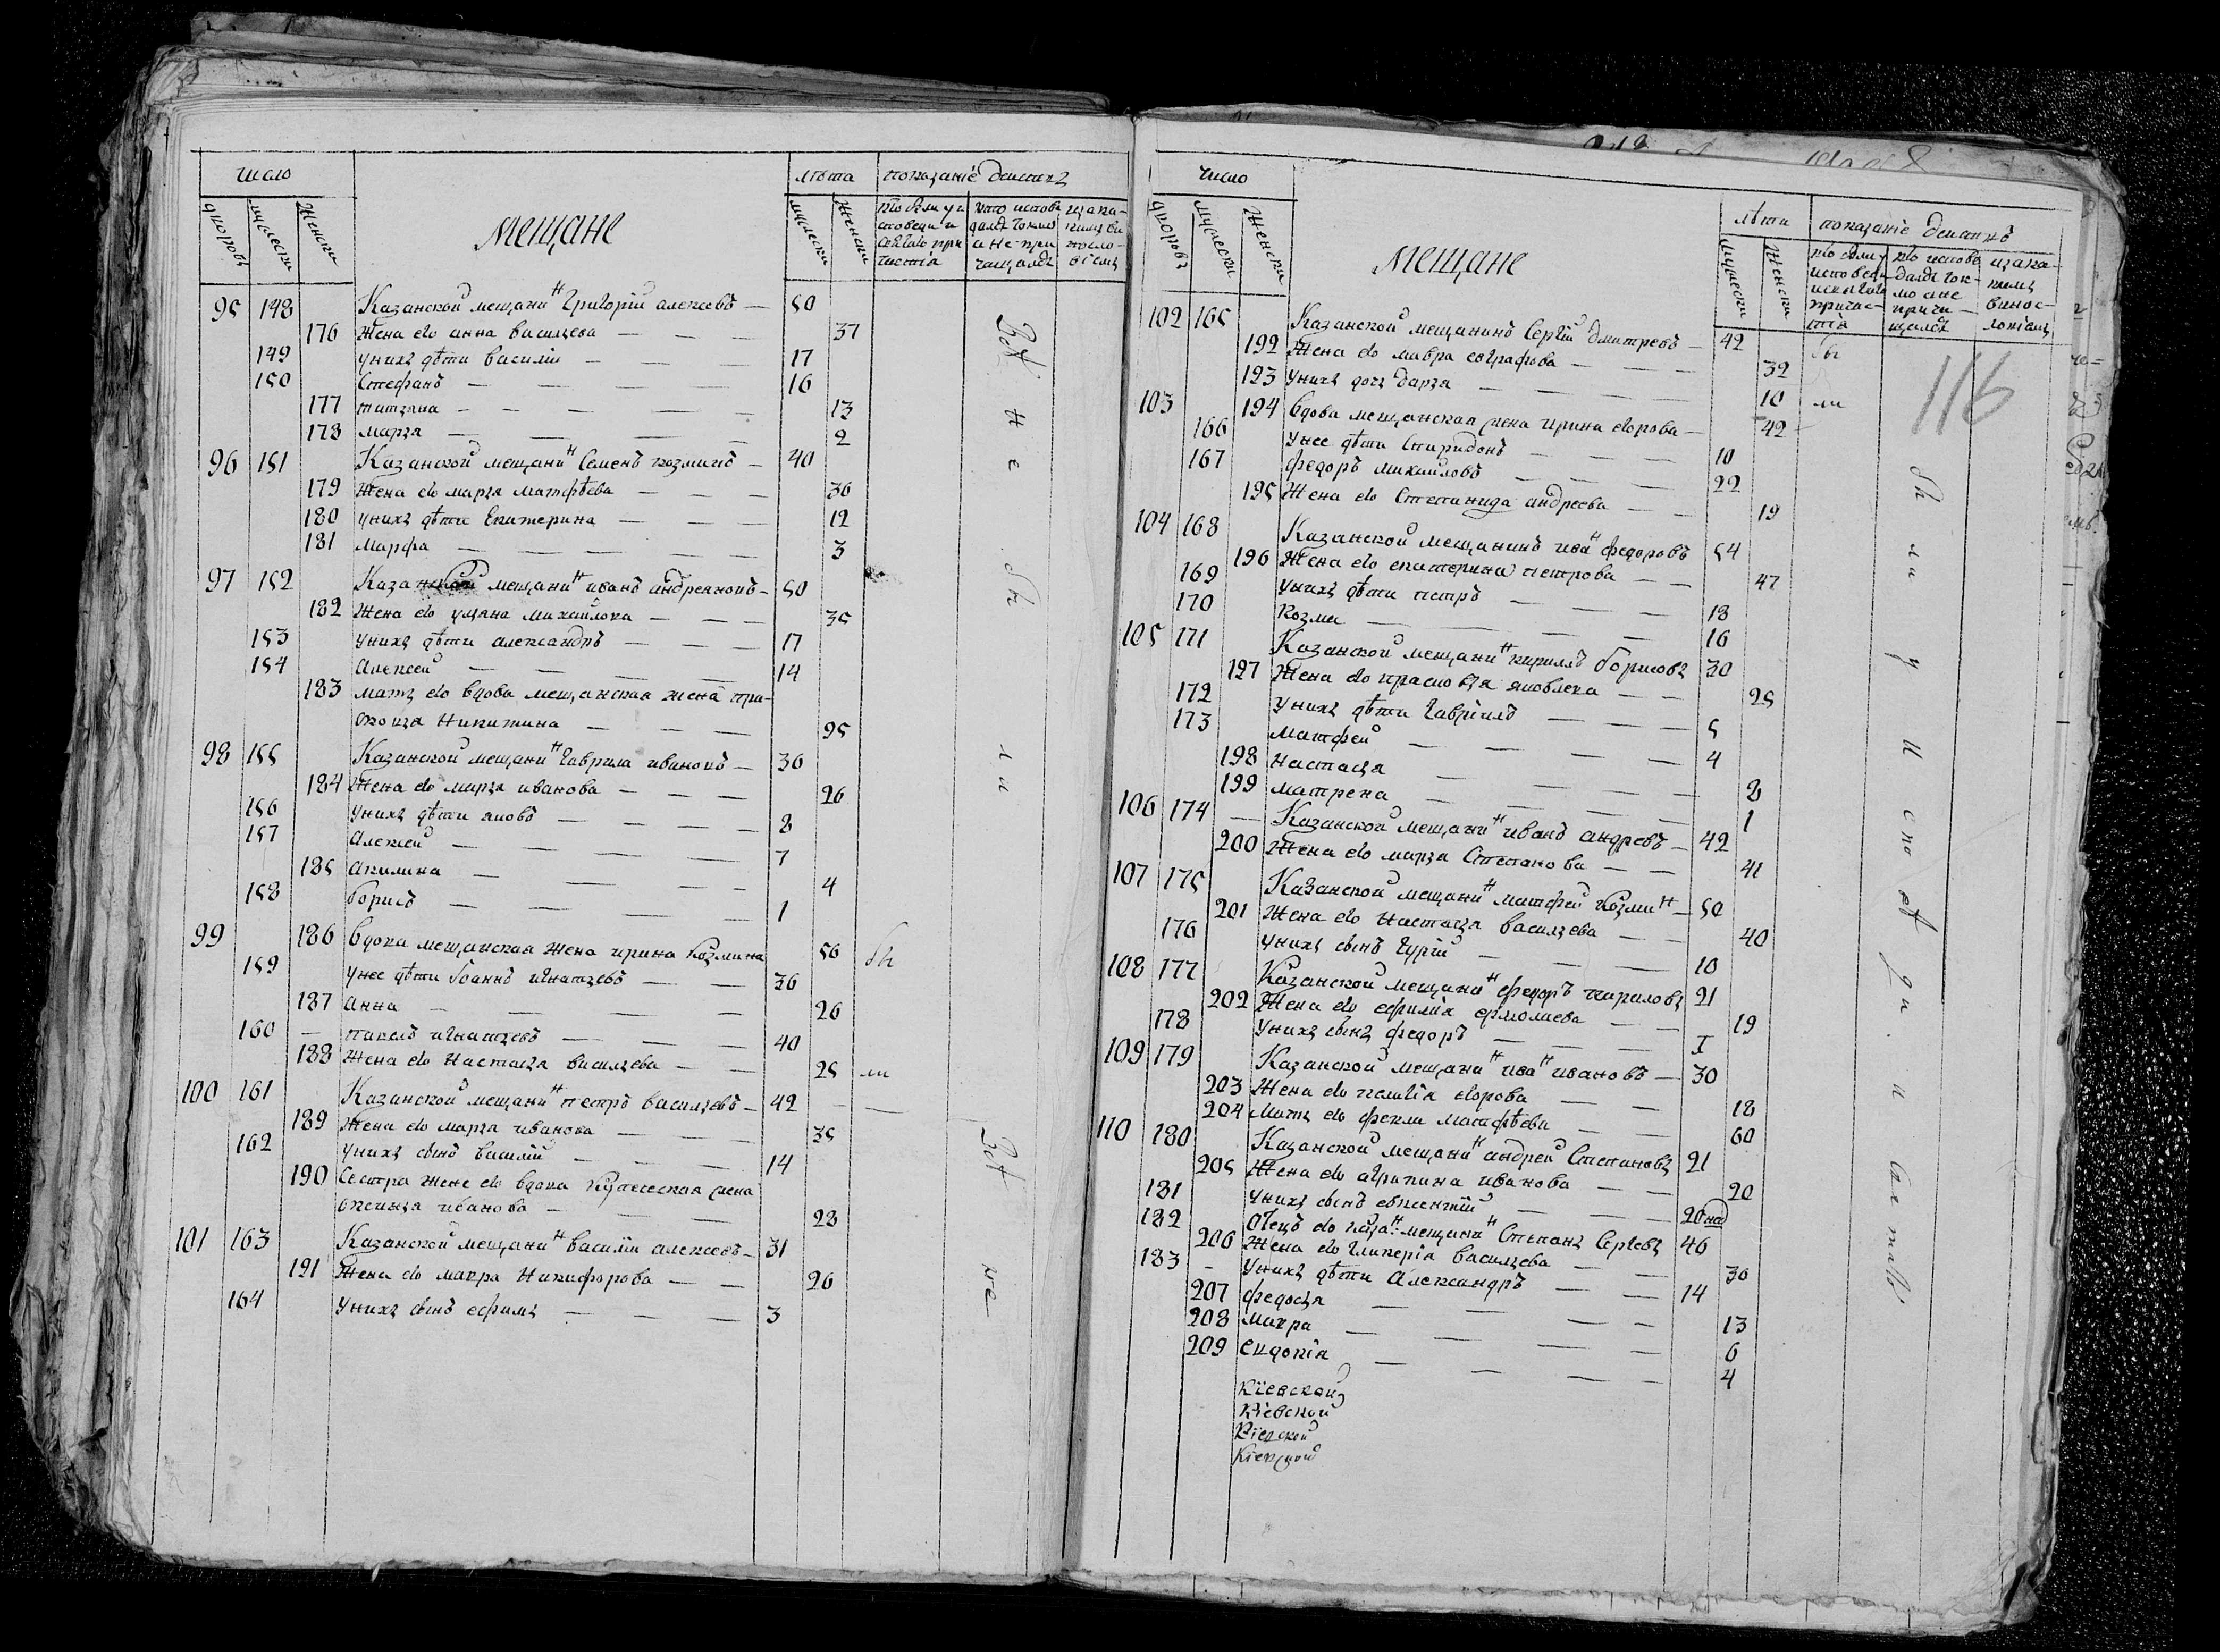 число
лѣта показаніе действ
дворовъ мужеска женска
мещане
мужески женски
кто были у исповеди и святаго причастія
кто исповедался токмо а не причащался
и за каким винословіемъ
95 148 Казанской мещанинъ Григорій алексеевъ — 50
176 Жена его анна васильева — — — 37
149 у нихъ дѣти василій — — — 17
150 Стефанъ — — — — 16
177 татьяна — — — — 13
178 марья — — — — 2
96 151 Казанской мещанинъ Семенъ козминъ — 40
179 Жена его марья матфѣева — — — 36
180 у нихъ дѣти Екатерина — — — 12
181 марфа — — — — 3
97 152 Казанской мещанинъ иванъ андреяновъ — 50
182 Жена его уляна михаилова — — — 35
153 у нихъ дѣти александръ — — — 17
154 алексей — — — — 14
183 мать его вдова мещанская жена пра-
сковья никитина — — — 95
98 155 Казанской мещанинъ гаврила ивановъ — 36
184 Жена его марья иванова — — — 26
156 у нихъ дѣти яковъ — — — — 8
157 алексей — — — — 7
185 акилина — — — — 4
158 борисъ — — — — 1
99 186 вдова мещанская жена ирина козмина 56
159 у нее дѣти Іоаннъ игнатьевъ — — 36
187 анна — — — — 26
160 — павелъ игнатьевъ — — — 40
188 Жена его настасья васильева — — 25
100 161 Казанской мещанинъ петръ васильевъ — 42
189 Жена его марья иванова — — — 35
162 у нихъ сынъ василій — — — 14
190 Сестра жене его вдова купеческая жена
оксинья иванова — — — 28
101 163 Казанской мещанинъ василій алексеевъ — 31
191 Жена его мавра никифорова — — 26
164 у нихъ сынъ ефимъ — — — 3
116
число
лѣта показаніе действъ
дворовъ мужески женски
мещане
мужески женски
кто были у исповеди и святаго причастія
кто исповедался токмо а не причащался
и за каким винословіемъ
102 165 Казанской мещанинъ Сергій дмитревъ — 42
192 Жена его мавра евграфова — — — 32
193 у нихъ дочь дарья — — — 10
103 194 вдова мещанская жена ирина егорова — 42
166 у нее дѣти Спиридонъ — — — 10
167 федоръ михаиловъ — — — 22
195 Жена его Степанида андреева — — 19
104 168 Казанской мещанинъ иванъ федоровъ 54
196 Жена его екатерина петрова — — 47
169 у нихъ дѣти петръ — — — 18
170 козма — — — — 16
105 171 Казанской мещанинъ кирилъ борисовъ 30
197 Жена его прасковья яковлева — — 25
172 у нихъ дѣти гавріилъ — — — 5
173 матфей — — — — 4
198 настасья — — — — 8
199 матрена — — — — 1
106 174 — Казанской мещанинъ иванъ андревъ — 42
200 Жена его марья Степанова — — 41
107 175 Казанской мещанинъ матфей козминъ — 50
201 Жена его настасья васильева — — 40
176 у нихъ сынъ гурій — — — 10
108 177 Казанской мещанинъ федоръ кириловъ 21
202 Жена его ефимія ермолаева — — 19
178 у нихъ сынъ федоръ — — — I
109 179 Казанской мещанинъ иванъ ивановъ — 30
203 Жена его пелагія егорова — — 18
204 мать его фекла матфѣева — — 60
110 180 Казанской мещанинъ андрей Степановъ 21
205 Жена его агрипина иванова — — 20
181 у нихъ сынъ евгенгій — — — 20 нед
182 отецъ его каза: мещанинъ Стыпанъ Сергѣевъ 46
206 Жена его гликерія васильева — — 36
183 - у нихъ дѣти Александръ — — 14
207 федосья — — — — 13
208 мавра — — — — 6
209 Евдокія — — — — 4
Кіевской
Кіевской
Кіевской
Кіевской